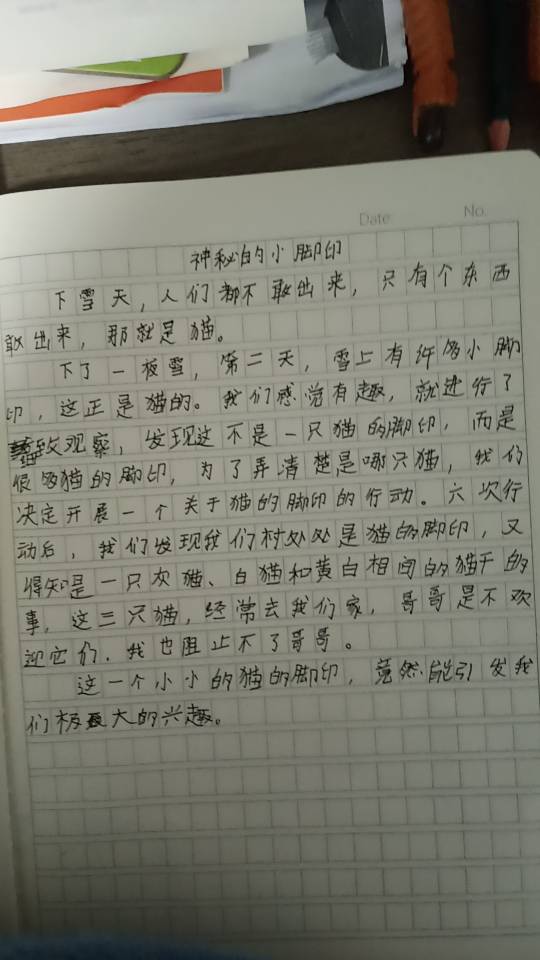 Date
No.
神秘的小脚印
下雪天，人们都不敢出来，只有个东西
敢出来，那就是猫。
下了一板雪，第二天，雪上有许多小脚
印，这正是猫的。我们感觉有趣，就进行了
致观察，发现这不是一只猫的脚印，而是
很多猫的脚印，为了弄清楚是哪只猫，我们
决定开展一个关于猫的脚印的行动。六次行
动后，我们发现我们村处处是猫的脚印，又
得知是一只灰猫、白猫和黄白相间的猫干的
事，这三只猫，经常去我们家，哥哥是不欢
迎它们．我也阻止不了哥哥。
这一个小小的猫的脚印，竟然能引发我
们极大的兴趣。